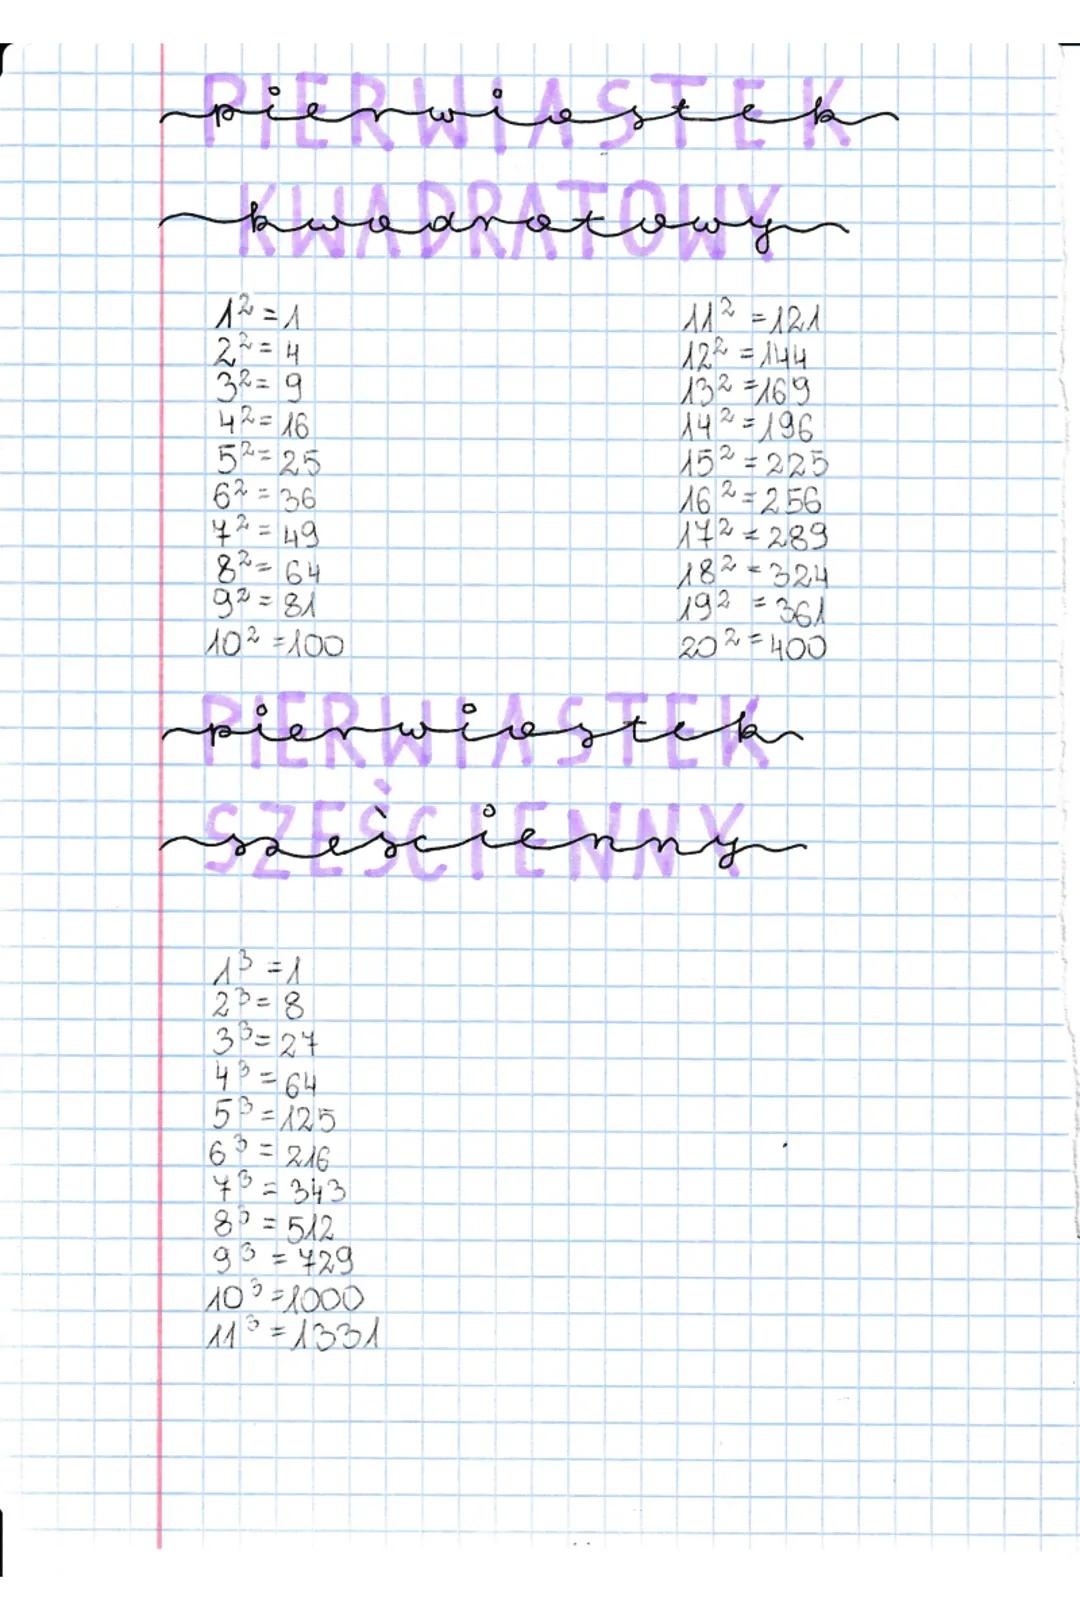 pierwiastek
kwadratowy
1² = 1
2² = 4
3² = 9
4² = 16
5² = 25
6² = 36
7² = 49
8² = 64
9² = 81
10² = 100
11² = 121
12² = 144
13² = 169
14² = 196
15² = 225
16² = 256
17² = 289
18² = 324
19² = 361
20² = 400
pierwiastek
sześcienny
1³ = 1
2³ = 8
3³ = 27
4³ = 64
5³ = 125
6³ = 216
7³ = 343
8³ = 512
9³ = 729
10³ = 1000
11³ = 1331